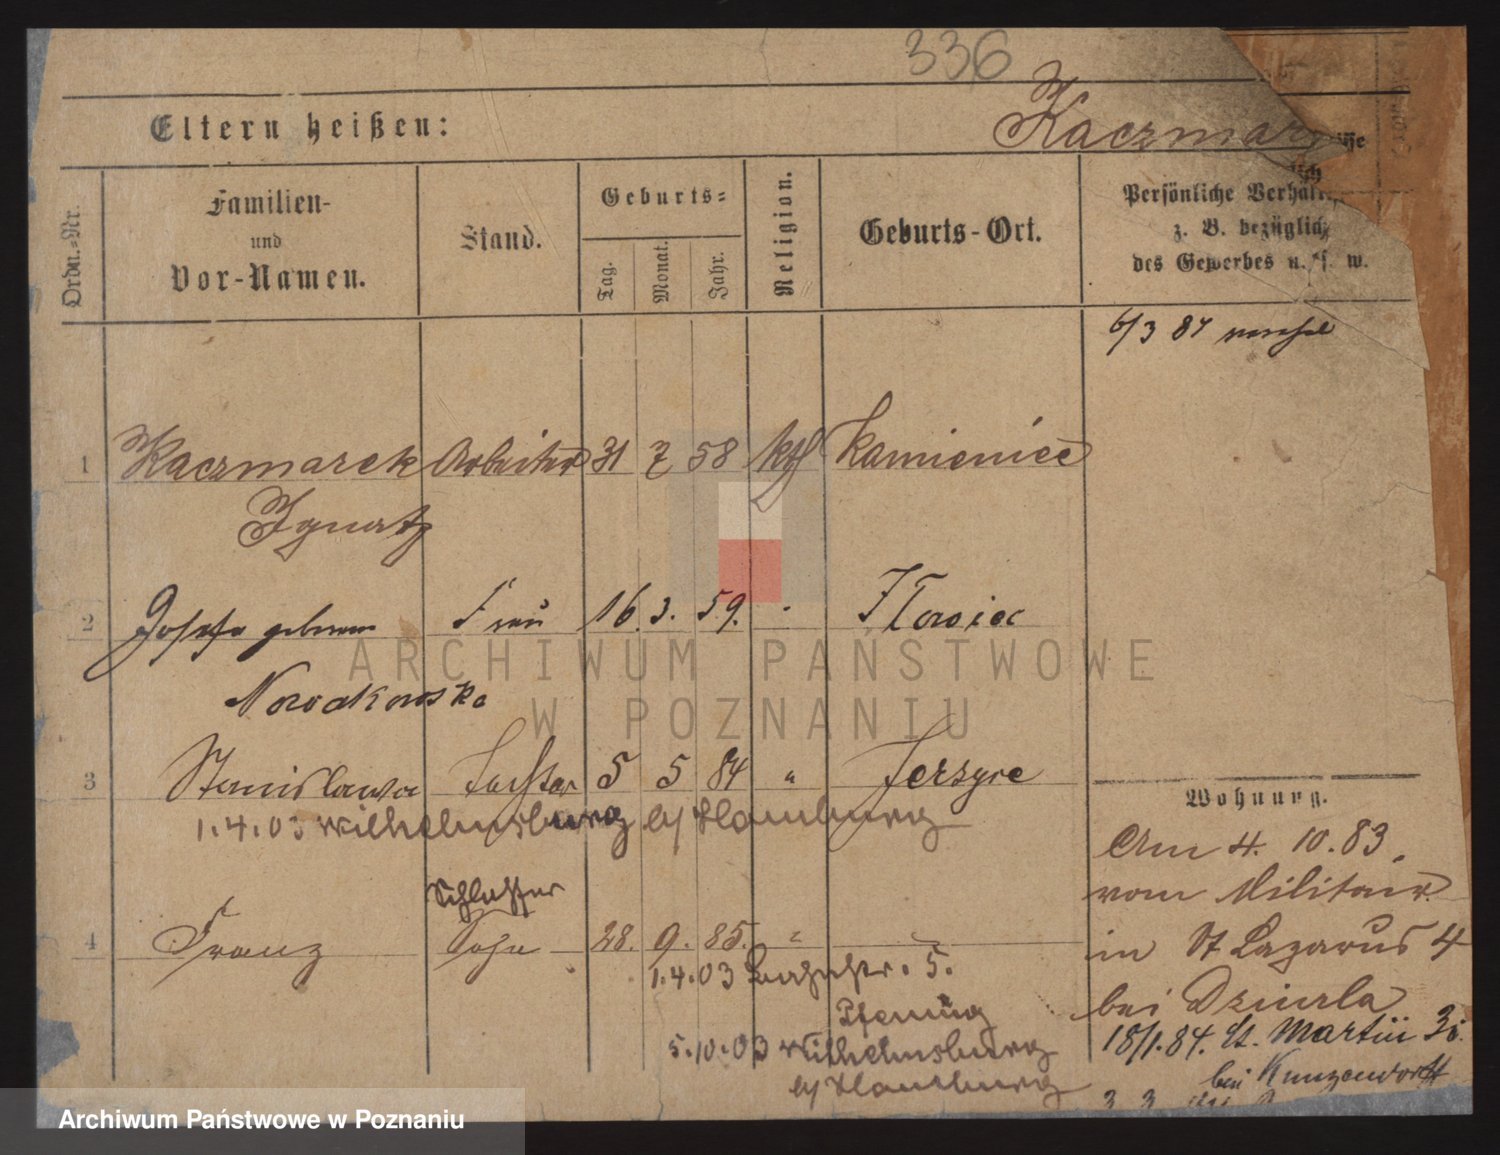 336
Eltern heißen:
Kaczmar
Ordn.-Nr.
Familien-
und
Vor-Namen.
Stand.
Geburts-
Tag.
Monat.
Jahr.
Religion.
Geburts-Ort.
Persönliche Verhält
z. B. bezüglich
des Gewerbes u. s. w.
6/3 84
1 Kaczmarek Arbeiter 31 7 58 kth Kamieniec
Ignatz
2 Josefa geborene Frau 16. 3. 59. Ilowiec
Nowakowska
3 Stanislawa Tochter 5 5 84 " Jerzyce
1.4.03 Wilhelmsburg b/Hamburg
Schlosser
4 Franz Sohn 28. 9. 85. "
1.4.03 5.
Pfennig
5.10.03 Wilhelmsburg
b/Hamburg
Wohnung.
Am 4. 10. 83.
vom Militair
in St Lazarus 4
bei Dziurla
18/1.84. St. Martin
bei Kunzendorff
ARCHIWUM PAŃSTWOWE
W POZNANIU
Archiwum Państwowe w Poznaniu